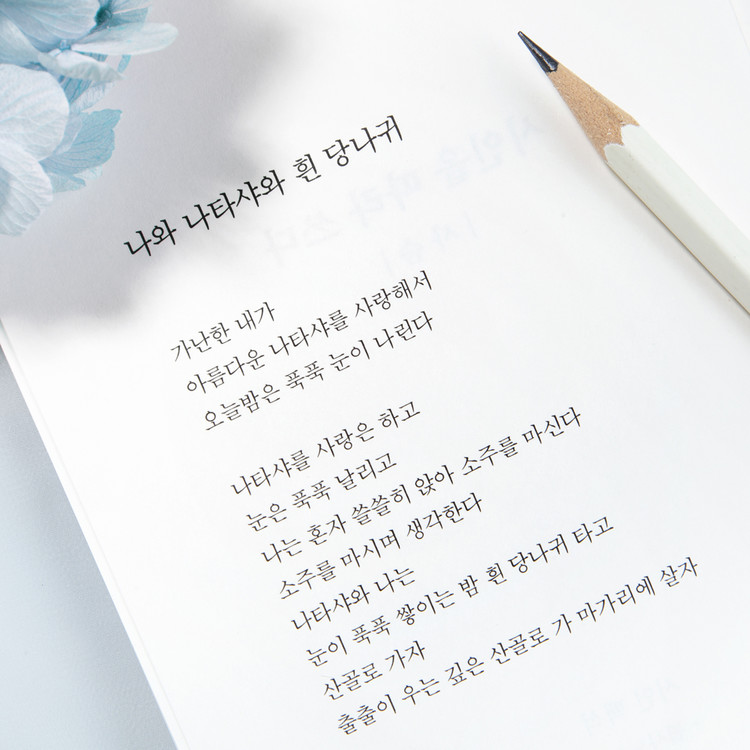 나와 나타샤와 흰 당나귀
가난한 내가
아름다운 나타샤를 사랑해서
오늘밤은 푹푹 눈이 나린다
나타샤를 사랑은 하고
눈은 푹푹 날리고
나는 혼자 쓸쓸히 앉아 소주를 마신다
소주를 마시며 생각한다
나타샤와 나는
눈이 푹푹 쌓이는 밤 흰 당나귀 타고
산골로 가자
출출이 우는 깊은 산골로 가 마가리에 살자